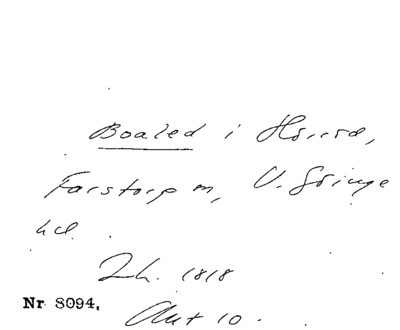 Boaled i Hörröd,
Farstorp sn, V. Göinge
hd.
Lh. 1818
Nr 8094.
Akt 10.